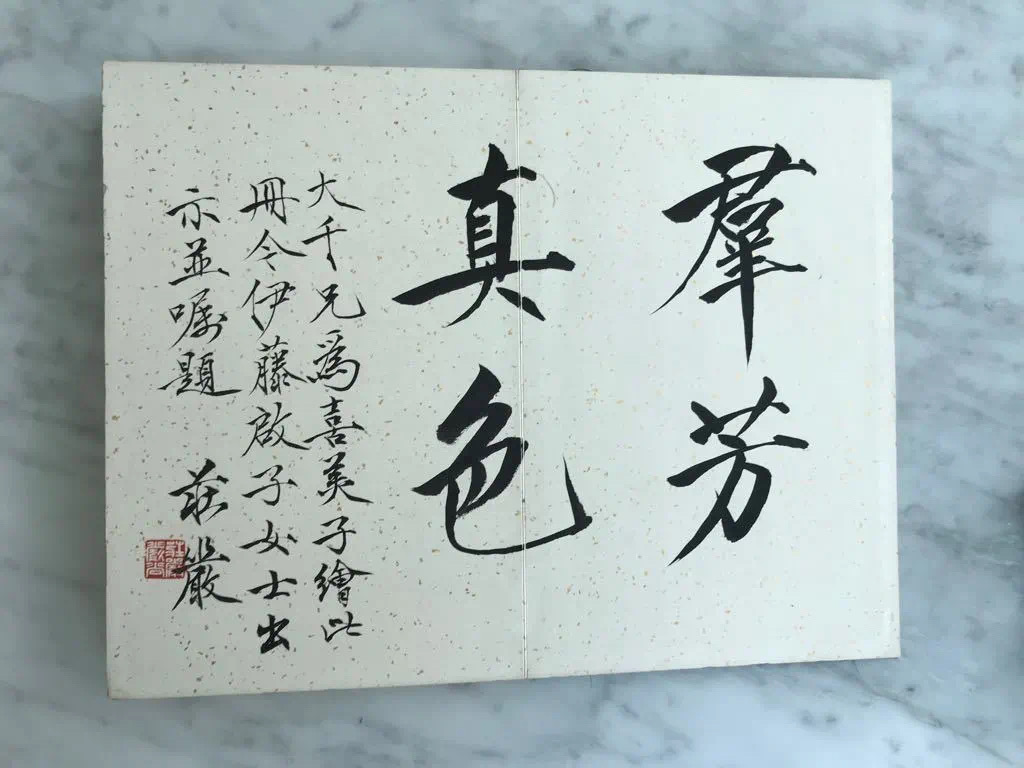 羣芳
真色
大千兄為喜美子繪此
冊令伊藤啟子女士出
示並囑題
莊嚴